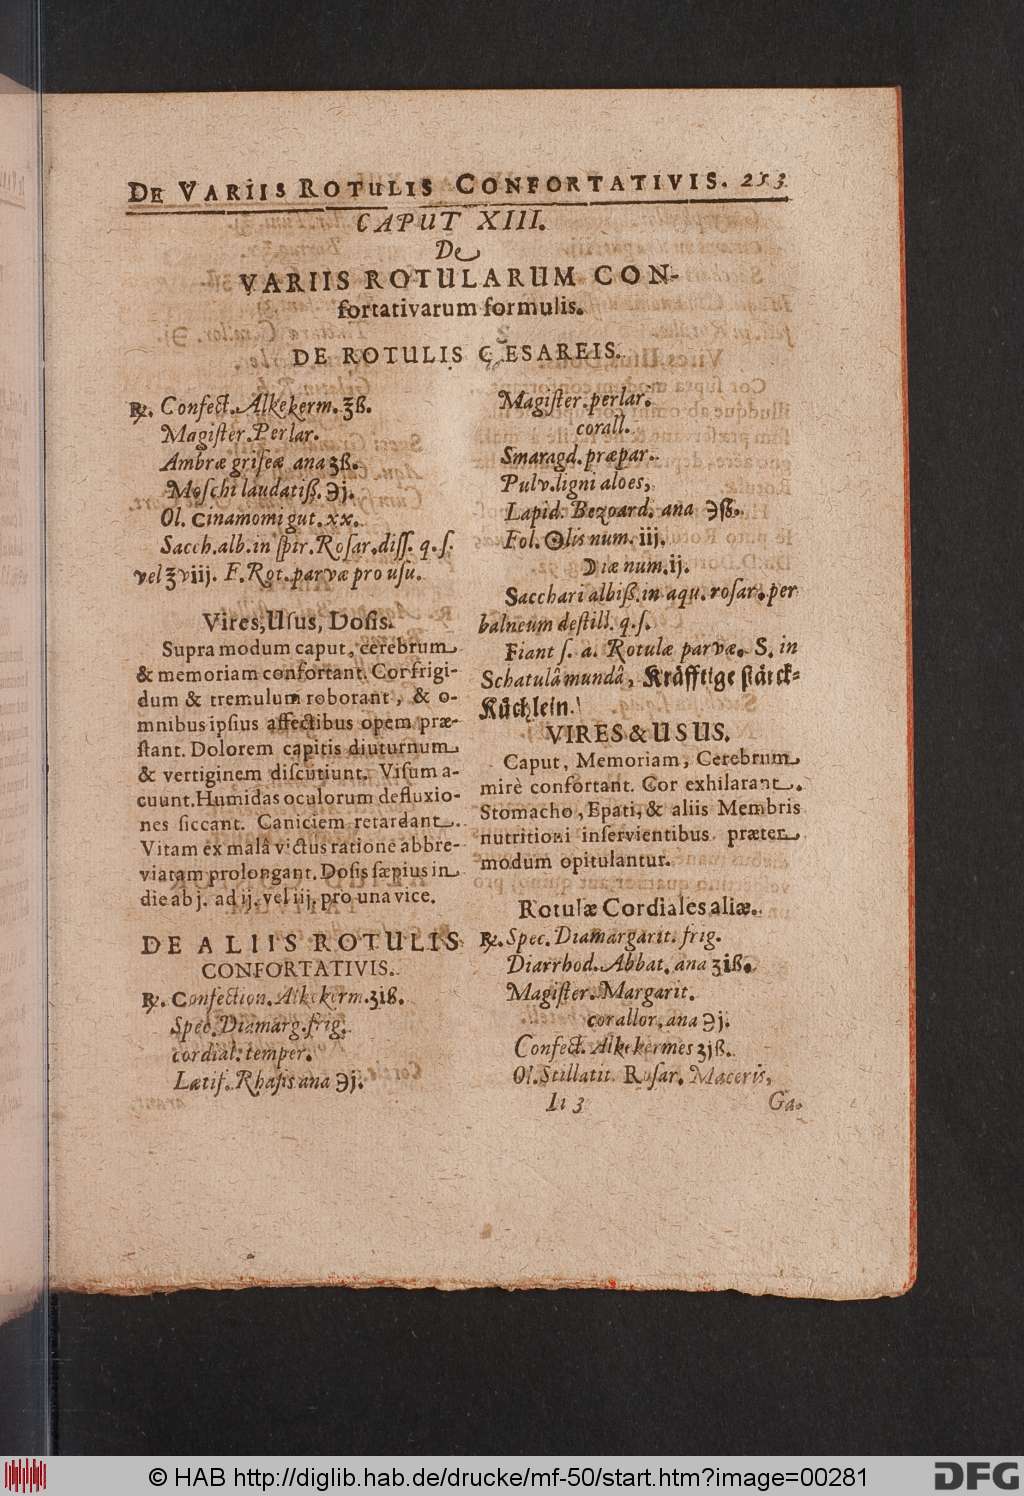 DE VARIIS ROTULIS CONFORTATIVIS. 253
CAPUT XIII.
De
VARIIS ROTULARUM CON-
fortativarum formulis.
DE ROTULIS CÆSAREIS.
℞. Confect. Alkekerm. ʒß.
Magiſter. Perlar.
Ambræ griſeæ ana ʒß.
Moſchi laudatiß. ℈j.
Ol. Cinamomi gut. xx.
Sacch. alb. in ſpir. Roſar. diſſ. q. ſ.
vel ʒviij. F. Rot. parvæ pro uſu.
Vires, Uſus, Doſis.
Supra modum caput, cerebrum
& memoriam confortant. Cor frigi-
dum & tremulum roborant, & o-
mnibus ipſius affectibus opem præ-
ſtant. Dolorem capitis diuturnum
& vertiginem diſcutiunt. Viſum a-
cuunt. Humidas oculorum defluxio-
nes ſiccant. Caniciem retardant.
Vitam ex malâ victus ratione abbre-
viatam prolongant. Doſis ſæpius in
die ab j. ad ij. vel iij. pro una vice.
DE ALIIS ROTULIS
CONFORTATIVIS.
℞. Confection. Alkekerm. ʒiß.
Spec. Diamarg. frig.
cordial. temper.
Lætif. Rhaſis ana ℈j.
Magiſter. perlar.
corall.
Smaragd. præpar.
Pulv. ligni aloes,
Lapid. Bezoard. ana ℈ß.
Fol. ☉lis num. iij.
☽iæ num. ij.
Sacchari albiß. in aqu. roſar. per
balneum deſtill. q. ſ.
Fiant ſ. a. Rotulæ parvæ. S. in
Schatulâ mundâ, Kräfftige ſtärck-
Küchlein.
VIRES & USUS.
Caput, Memoriam, Cerebrum
mirè confortant. Cor exhilarant.
Stomacho, Epati, & aliis Membris
nutritioni inſervientibus præter
modum opitulantur.
Rotulæ Cordiales aliæ.
℞. Spec. Diamargarit. frig.
Diarrhod. Abbat. ana ʒiß.
Magiſter. Margarit.
corallor. ana ℈j.
Confect. Alkekermes ʒjß.
Ol. Stillatit. Roſar. Maceris,
Ii 3 Ga-
© HAB http://diglib.hab.de/drucke/mf-50/start.htm?image=00281
DFG